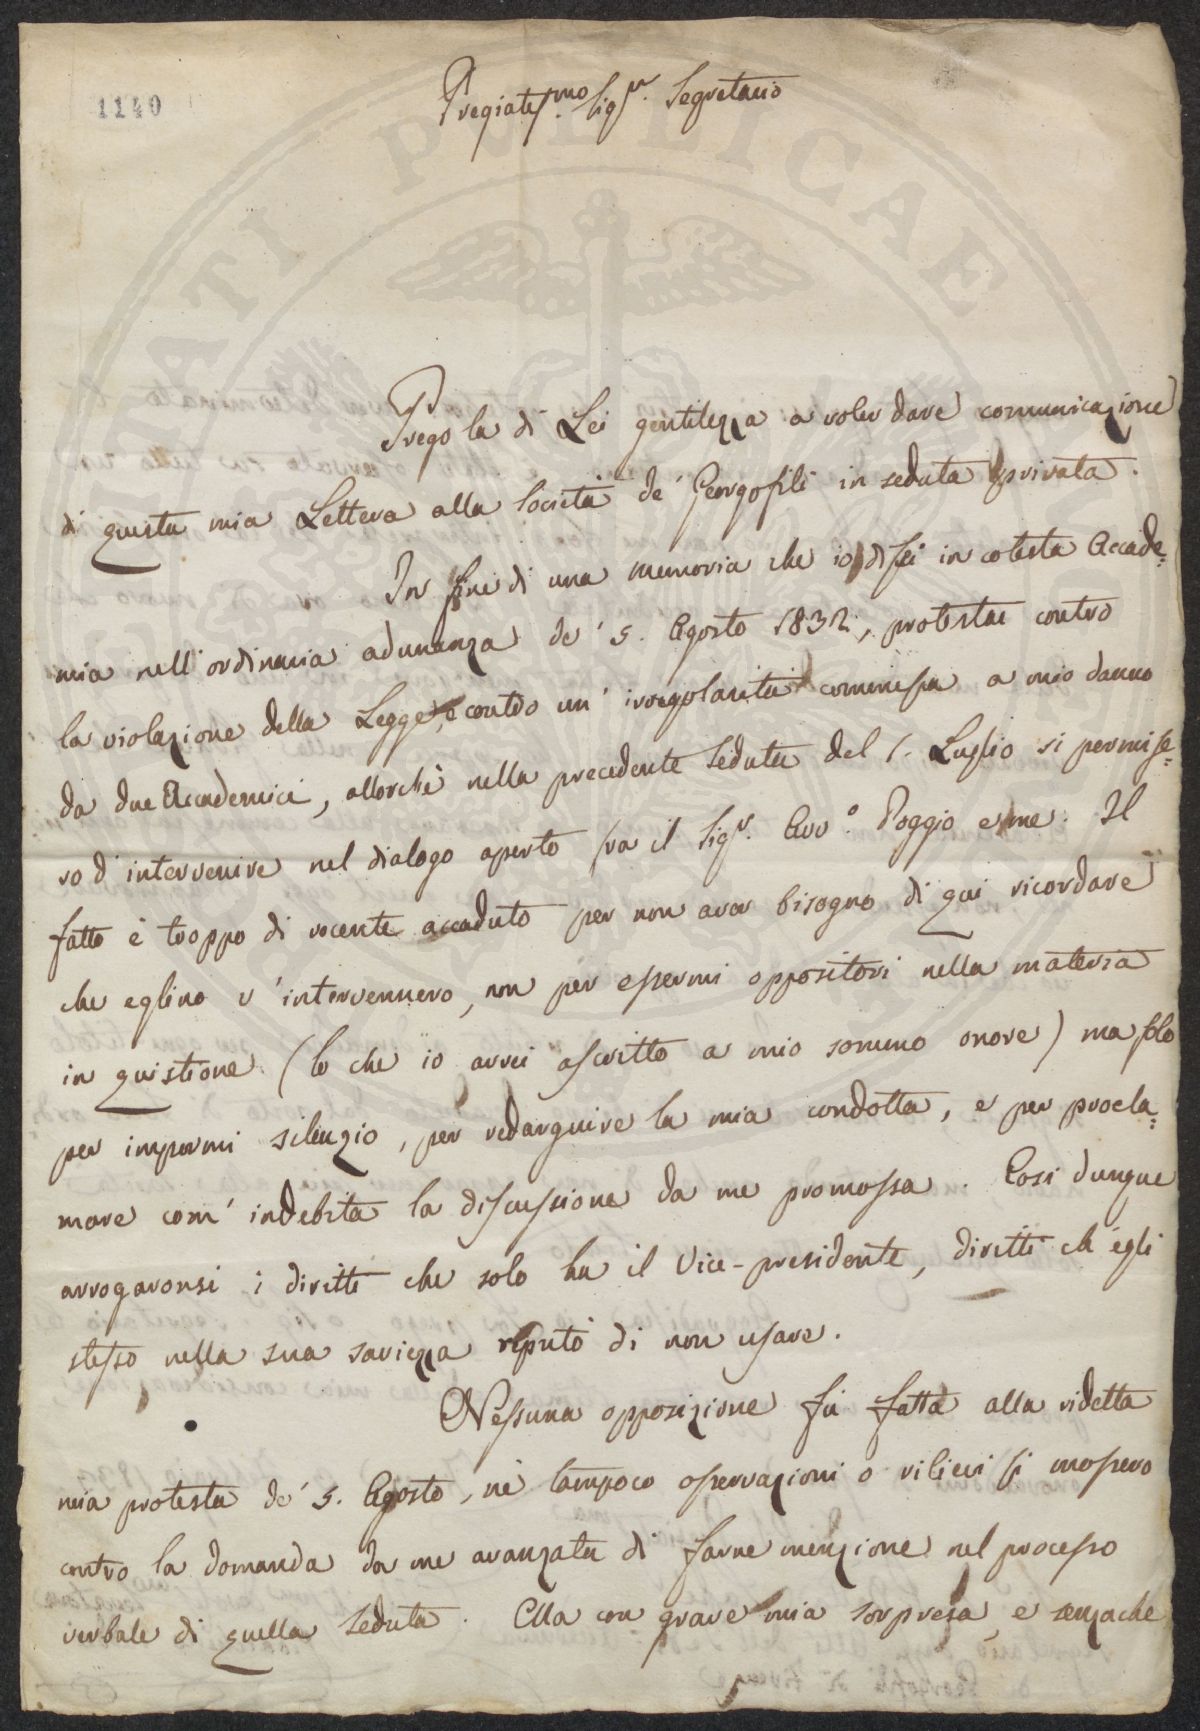 1140
Pregiatiss.mo Sig.r Segretario
Prego la di Lei gentilezza a voler dare comunicazione
di questa mia Lettera alla Società de' Georgofili in seduta privata.
In fine di una memoria che io dissi in cotesta Accade=
mia nell'ordinaria adunanza de' 5. Agosto 1832, protestai contro
la violazione della Legge, e contro un' irregolarità commessa a mio danno
da due Accademici, allorchè nella precedente Seduta del 1. Luglio si permise=
ro d'intervenire nel dialogo aperto fra il Sig.r Avv.o Poggio e me. Il
fatto è troppo di recente accaduto per non aver bisogno di qui ricordare
che eglino v'intervennero, non per essermi oppositori nella materia
in quistione (lo che io avrei ascritto a mio sommo onore) ma solo
per impormi silenzio, per redarguire la mia condotta, e per procla=
mare com' indebita la discussione da me promossa. Così dunque
arrogaronsi i diritti che solo ha il Vice-presidente, diritti ch'egli
stesso nella sua saviezza reputò di non usare.
Nessuna opposizione fù fatta alla ridetta
mia protesta de' 5. Agosto, nè tampoco osservazioni o rilievi si mossero
contro la domanda da me avanzata di farne menzione nel processo
verbale di quella Seduta. Ella con grave mia sorpresa, e senzache
PUBLICAE